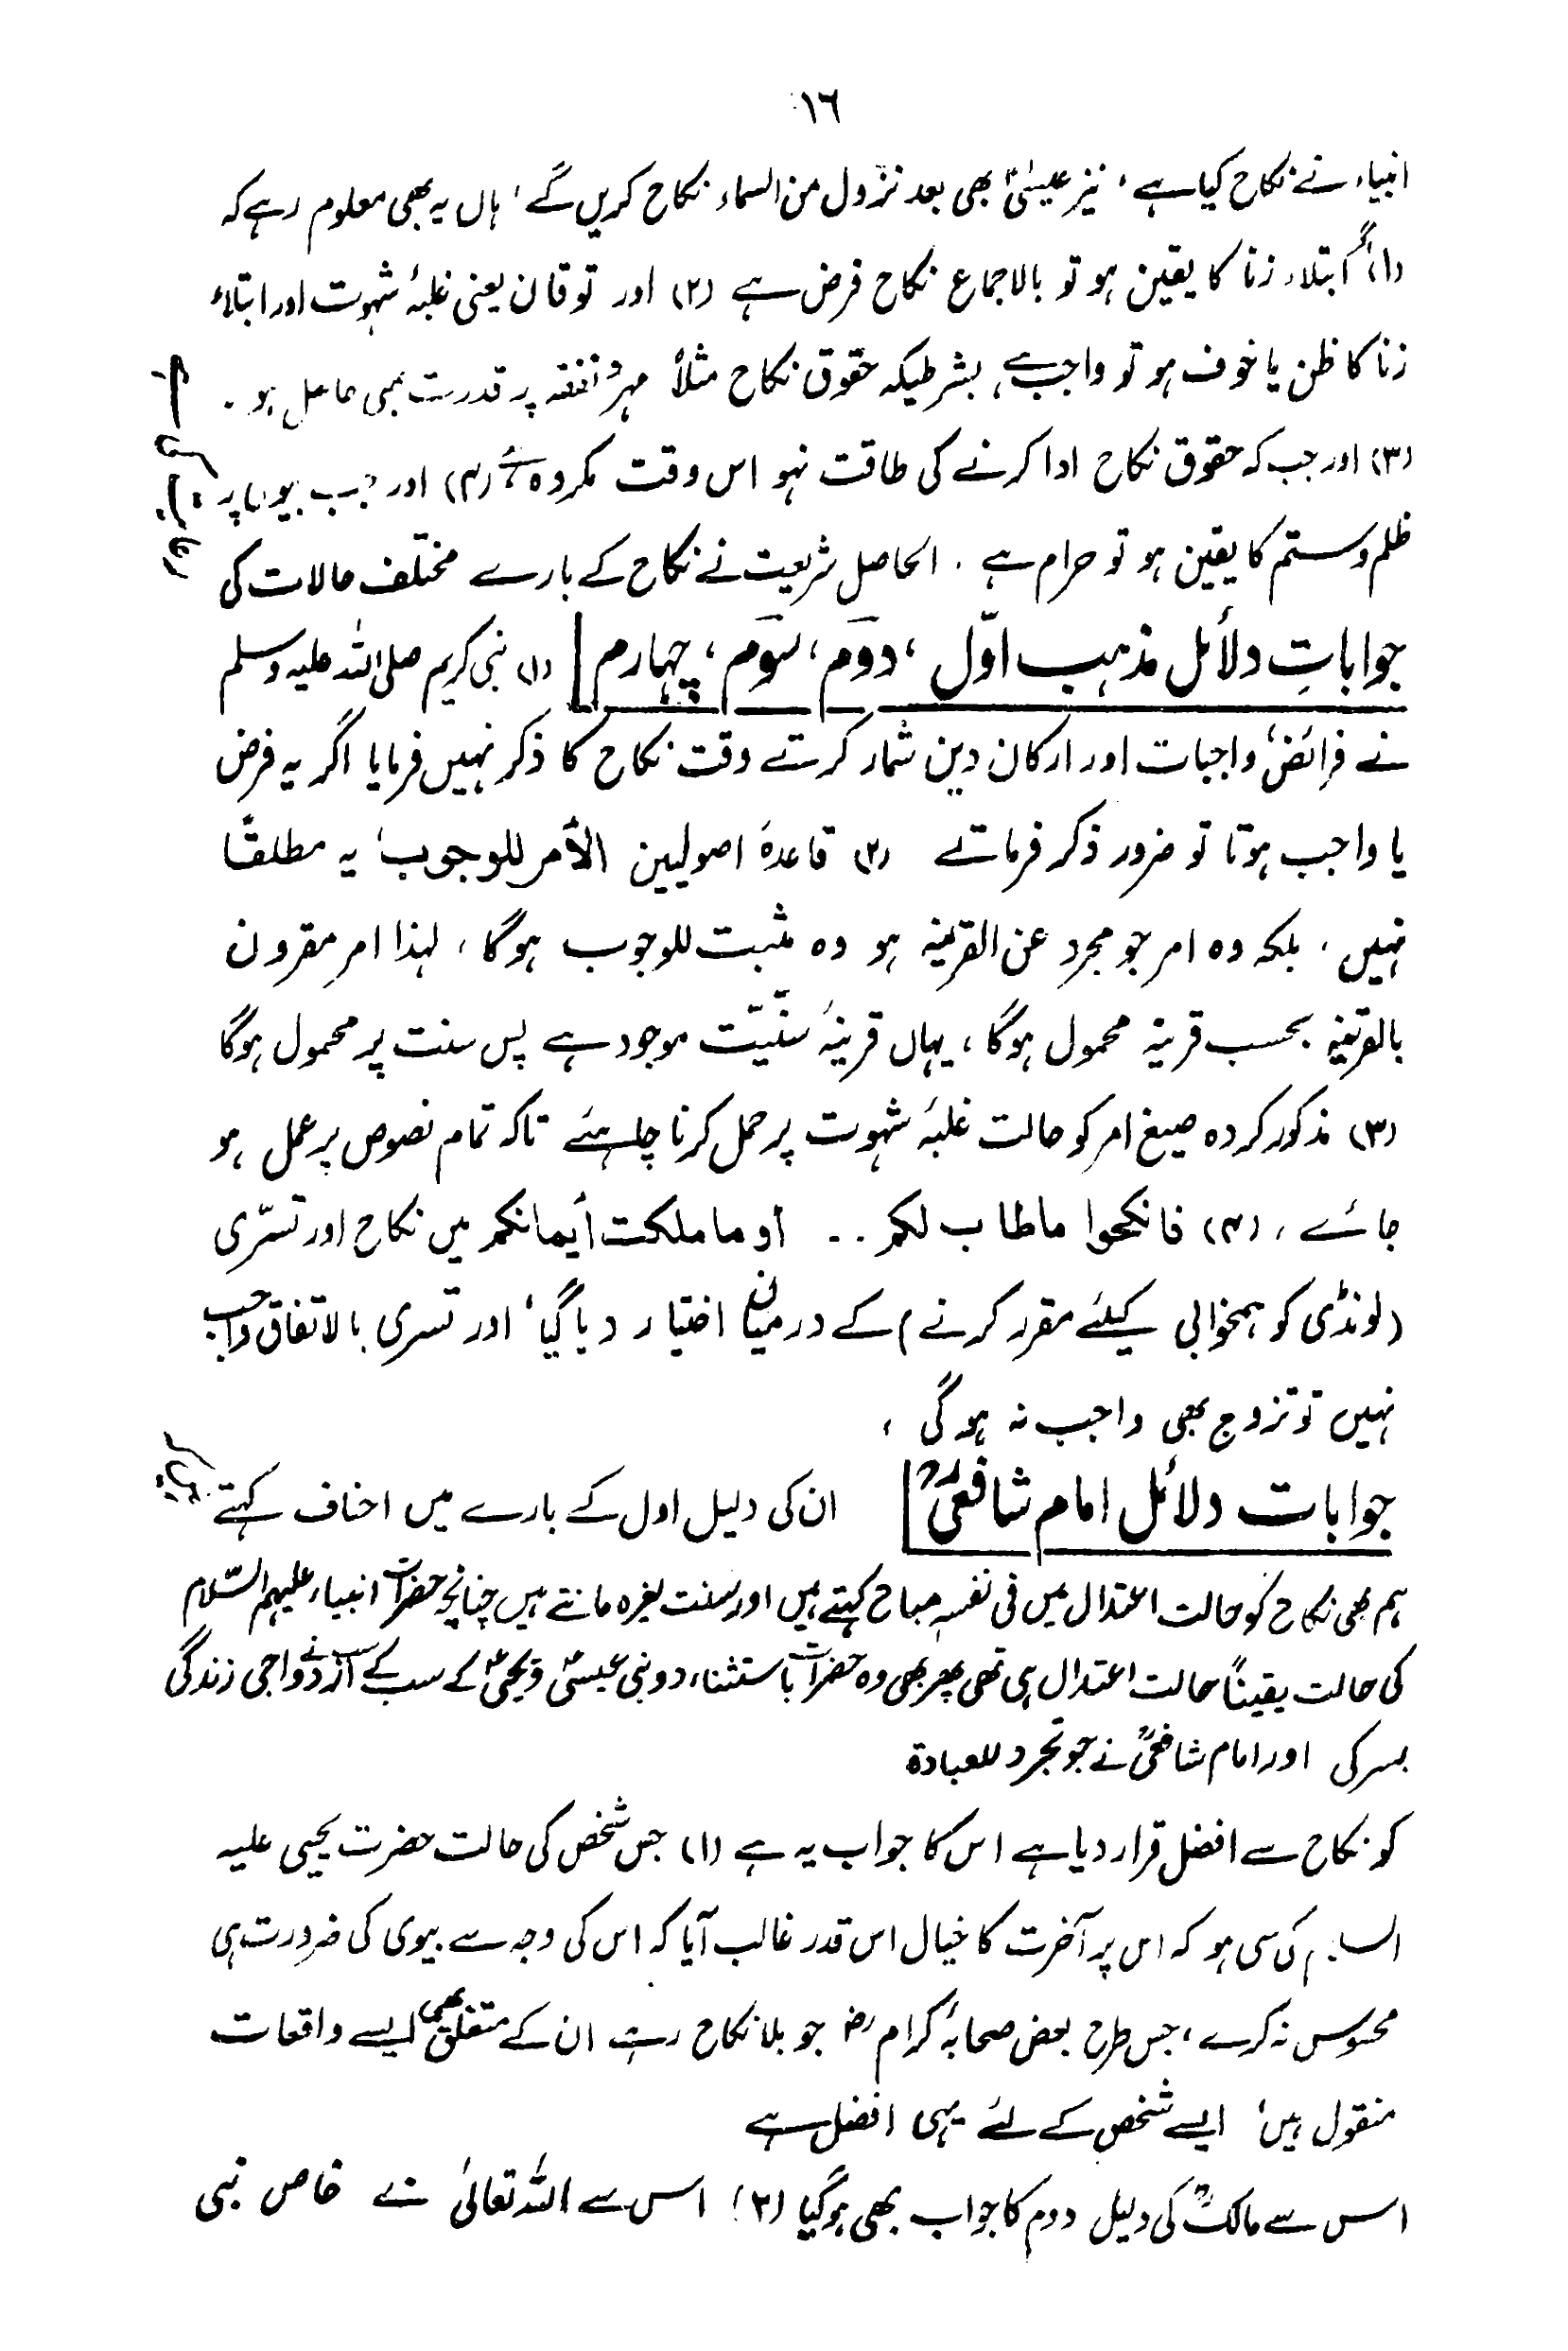 ١٦
انبیاء نے نکاح کیا ہے، نیز عیسیٰؑ بھی بعد نزول من السماء نکاح کریں گے، ہاں یہ بھی معلوم رہے کہ
(۱) اگر ابتلاء زنا کا یقین ہو تو بالاجماع نکاح فرض ہے (۲) اور توقان یعنی غلبۂ شہوت اور ابتلاء
زنا کا ظن یا خوف ہو تو واجب ہے، بشرطیکہ حقوق نکاح مثلاً مہر و نفقہ پر قدرت بھی حاصل ہو۔
(۳) اور جب کہ حقوق نکاح ادا کرنے کی طاقت نہو اس وقت مکروہ ہے (۴) اور جب بیوی پر
ظلم و ستم کا یقین ہو تو حرام ہے۔ الحاصل شریعت نے نکاح کے بارے مختلف حالات کی
جواباتِ دلائل مذہب اوّل، دوم، سوم، چہارم (۱) نبی کریم صلی اللہ علیہ وسلم
نے فرائض، واجبات اور ارکان دین شمار کرتے وقت نکاح کا ذکر نہیں فرمایا اگر یہ فرض
یا واجب ہوتا تو ضرور ذکر فرماتے (۲) قاعدۂ اصولیین الأمر للوجوب، یہ مطلقًا
نہیں، بلکہ وہ امر جو مجرد عن القرینہ ہو وہ مثبت للوجوب ہوگا، لہذا امرِ مقرون
بالقرینہ بحسب قرینہ محمول ہوگا، یہاں قرینۂ سنّیّت موجود ہے پس سنت پر محمول ہوگا
(۳) مذکور کردہ صیغ امر کو حالت غلبۂ شہوت پر حمل کرنا چاہئے تاکہ تمام نصوص پر عمل ہو
جائے، (۴) فانکحوا ماطاب لکم .. أو ما ملکت أیمانکم میں نکاح اور تسرّی
(لونڈی کو ہمخوابی کیلئے مقرر کرنے) کے درمیان اختیار دیا گیا، اور تسری بالاتفاق واجب
نہیں تو تزوج بھی واجب نہ ہوگی،
جوابات دلائل امام شافعیؒ ان کی دلیل اول کے بارے میں احناف کہتے
ہم بھی نکاح کو حالت اعتدال میں فی نفسہٖ مباح کہتے ہیں اور سنت لغیرہ مانتے ہیں چنانچہ حضرات انبیاء علیہم السّلام
کی حالت یقیناً حالت اعتدال ہی تھی پھر بھی وہ حضرات باستثناء دو نبی عیسیٰؑ و یحییٰؑ کے سب کے سب نے ازدواجی زندگی
بسر کی اور امام شافعیؒ نے جو تجرد للعبادۃ
کو نکاح سے افضل قرار دیا ہے اس کا جواب یہ ہے (۱) جس شخص کی حالت حضرت یحییٰ علیہ
السلام کی سی ہو کہ اس پر آخرت کا خیال اس قدر غالب آیا کہ اس کی وجہ سے بیوی کی ضرورت ہی
محسوس نہ کرے، جس طرح بعض صحابۂ کرامؓ جو بلا نکاح رہے ان کے متعلق بھی ایسے واقعات
منقول ہیں، ایسے شخص کے لئے یہی افضل ہے
اس سے مالکؒ کی دلیل دوم کا جواب بھی ہوگیا (۲) اس سے اللہ تعالیٰ نے خاص نبی